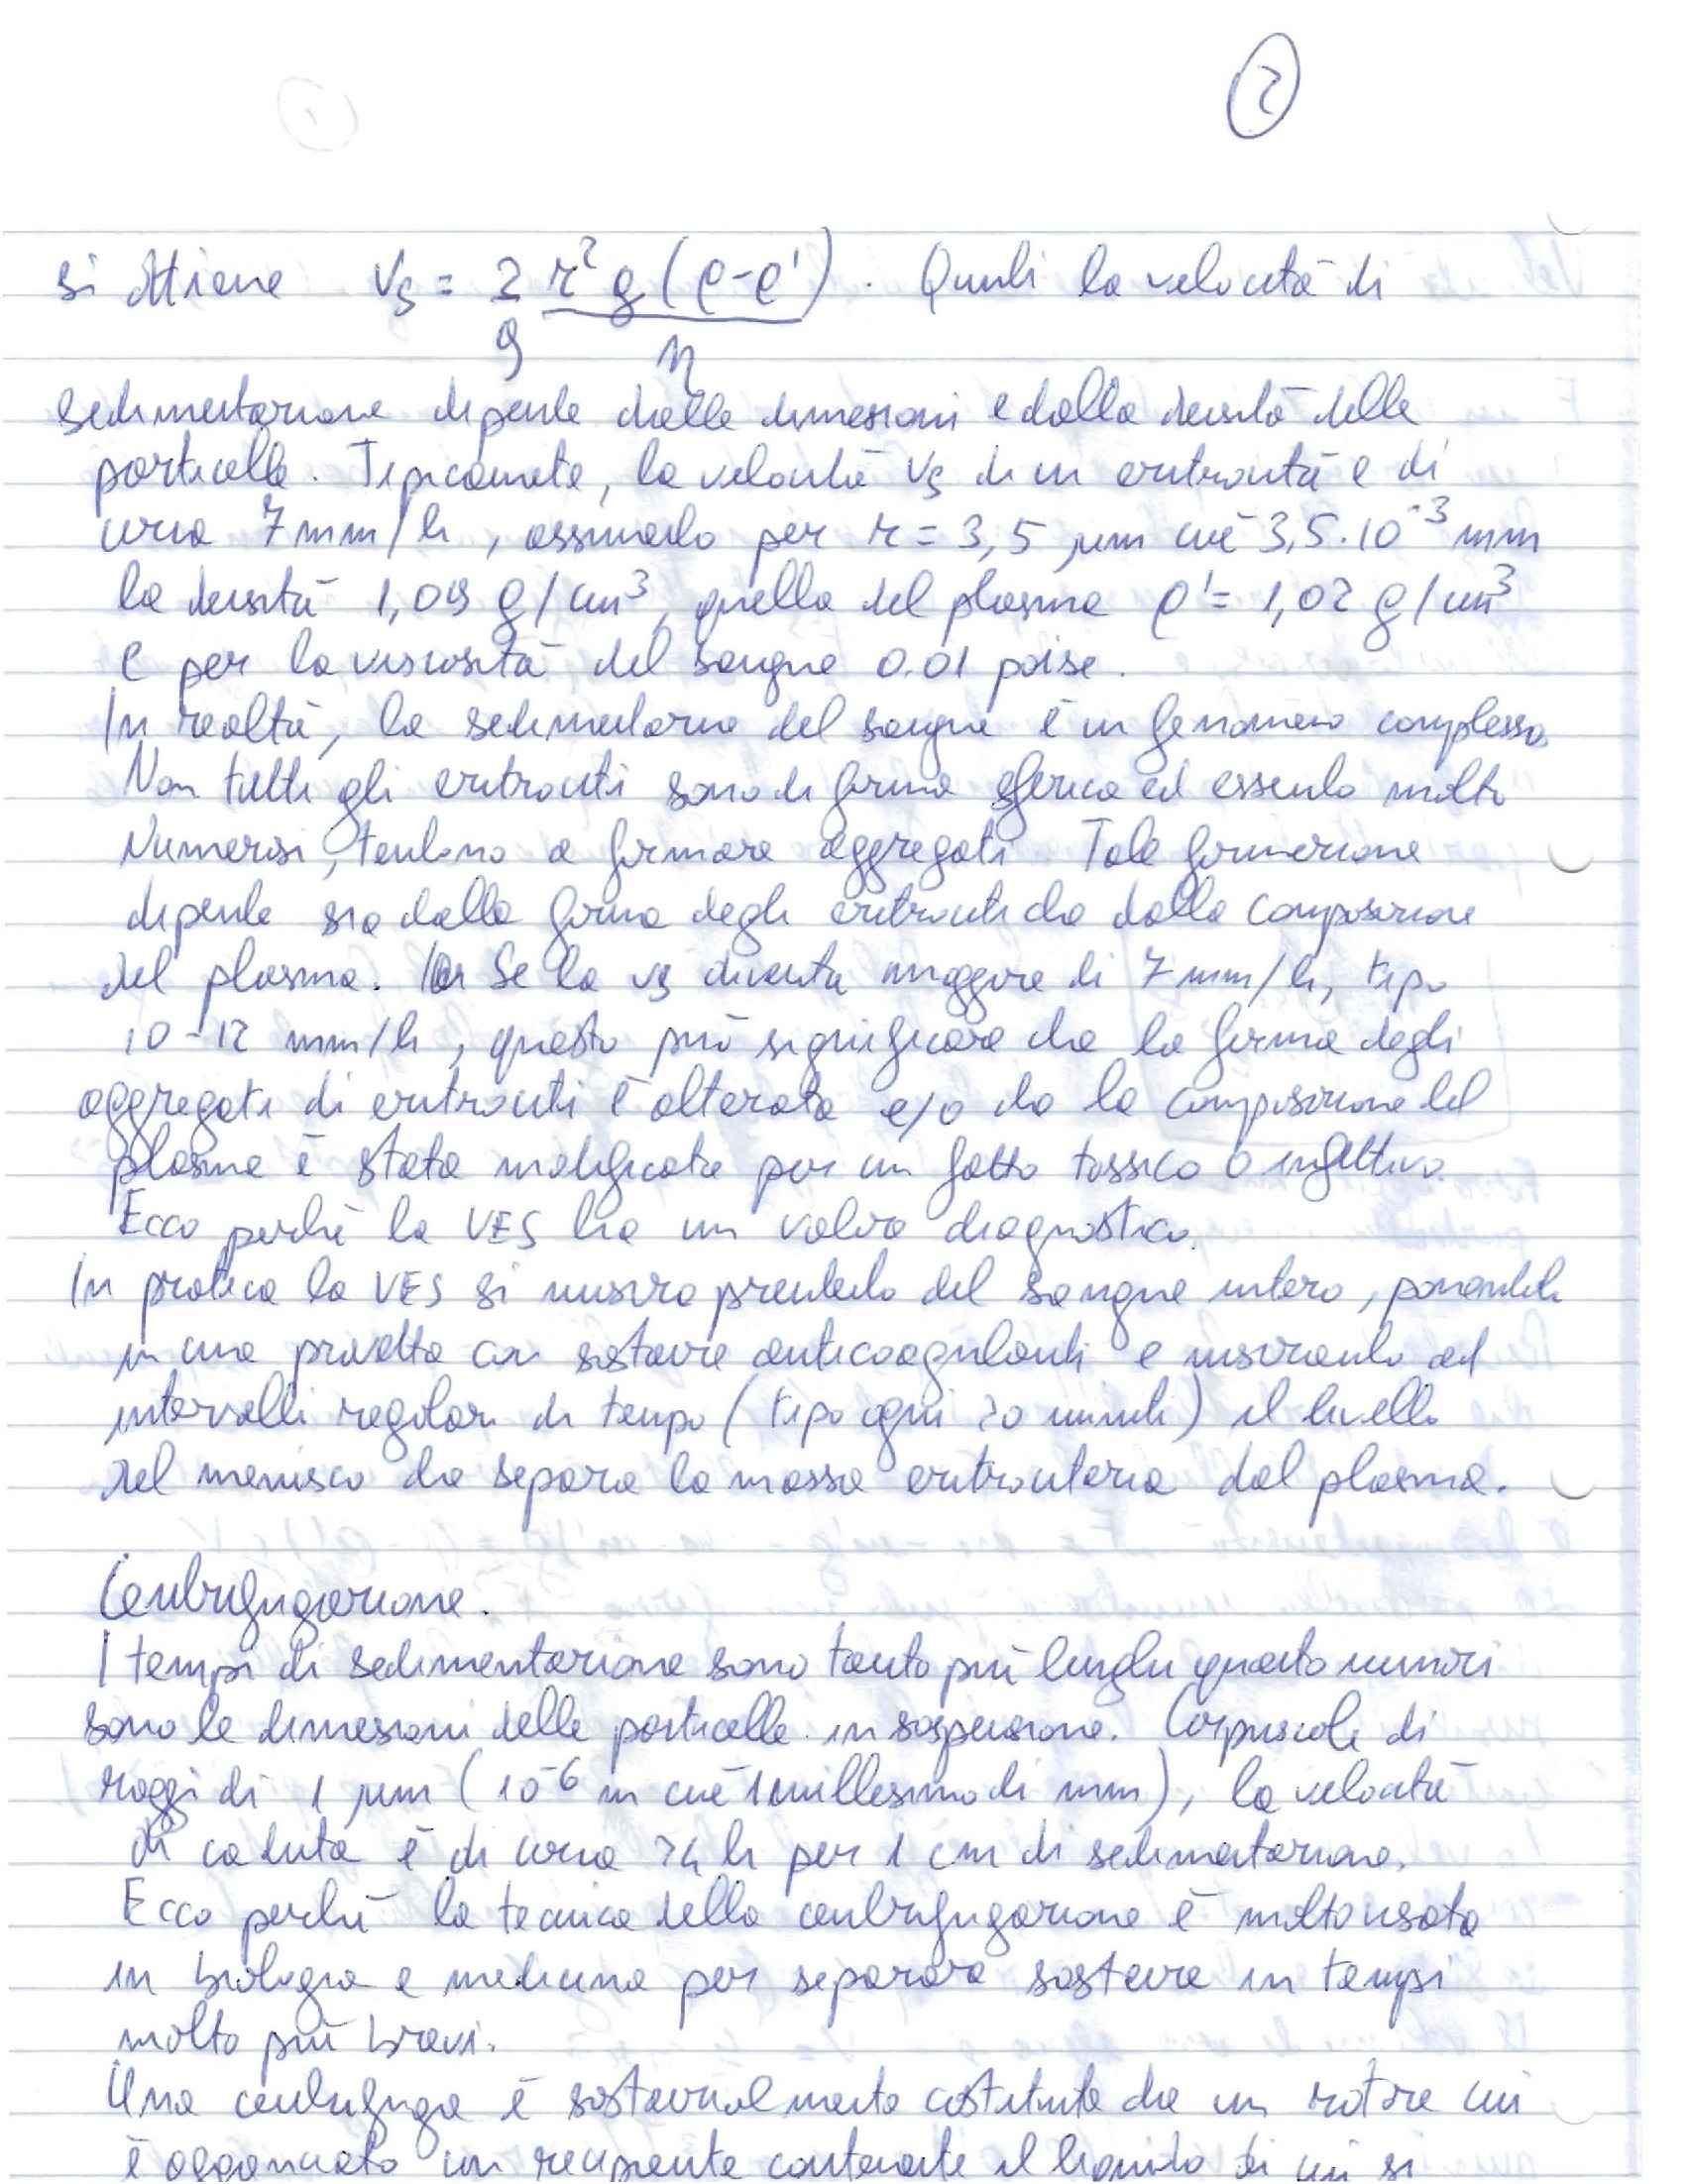 2
si ottiene vs = 2/9 r² g (ρ-ρ')/η . Quindi la velocità di
sedimentazione dipende dalle dimensioni e dalla densità delle
particelle. Tipicamente, la velocità vs di un eritrocita è di
circa 7 mm/h, assumendo per r = 3,5 µm cioè 3,5·10⁻³ mm
la densità 1,09 g/cm³, quella del plasma ρ' = 1,02 g/cm³
e per la viscosità del sangue 0.01 poise.
In realtà, la sedimentazione del sangue è un fenomeno complesso.
Non tutti gli eritrociti sono di forma sferica ed essendo molto
numerosi, tendono a formare aggregati. Tale formazione
dipende sia dalla forma degli eritrociti che dalla composizione
del plasma. Se la vs diventa maggiore di 7 mm/h, tipo
10-12 mm/h, questo può significare che la forma degli
aggregati di eritrociti è alterata e/o che la composizione del
plasma è stata modificata per un fatto tossico o infettivo.
Ecco perché la VES ha un valore diagnostico.
In pratica la VES si misura prendendo del sangue intero, ponendolo
in una provetta con sostanze anticoagulanti e misurando ad
intervalli regolari di tempo (tipo ogni 20 minuti) il livello
del menisco che separa la massa eritrocitaria dal plasma.
Centrifugazione.
I tempi di sedimentazione sono tanto più lunghi quanto minori
sono le dimensioni delle particelle in sospensione. Corpuscoli di
raggi di 1 µm (10⁻⁶ m cioè 1 millesimo di mm), la velocità
di caduta è di circa 24 h per 1 cm di sedimentazione.
Ecco perché la tecnica della centrifugazione è molto usata
in biologia e medicina per separare sostanze in tempi
molto più brevi.
Una centrifuga è sostanzialmente costituita da un rotore cui
è agganciato un recipiente contenente il liquido di cui si